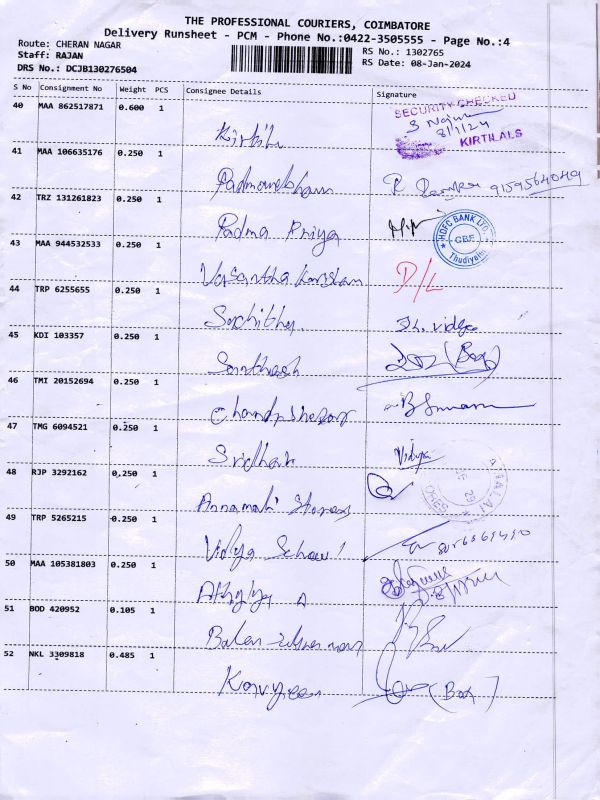 THE PROFESSIONAL COURIERS, COIMBATORE
Delivery Runsheet - PCM - Phone No.:0422-3505555 - Page No.:4
Route: CHERAN NAGAR
RS No.: 1302765
Staff: RAJAN
RS Date: 08-Jan-2024
DRS No.: DCJB130276504
S No Consignment No Weight PCS Consignee Details Signature
40 MAA 862517871 0.600 1
SECURITY CHECKED
8/1/24
KIRTILALS
41 MAA 106635176 0.250 1
Padmanabhan 9159564049
42 TRZ 131261823 0.250 1
Padma Priya
HDFC BANK LTD
CBE
43 MAA 944532533 0.250 1
D/L
44 TRP 6255655 0.250 1
45 KDI 103357 0.250 1
Santhosh (Box)
46 TMI 20152694 0.250 1
Chandrshekar
47 TMG 6094521 0.250 1
Sridhar Vidya
48 RJP 3292162 0,250 1
Annamali Stores
49 TRP 5265215 0.250 1
Vidya School
50 MAA 105381803 0.250 1
51 BOD 420952 0.105 1
52 NKL 3309818 0.485 1
(Box)